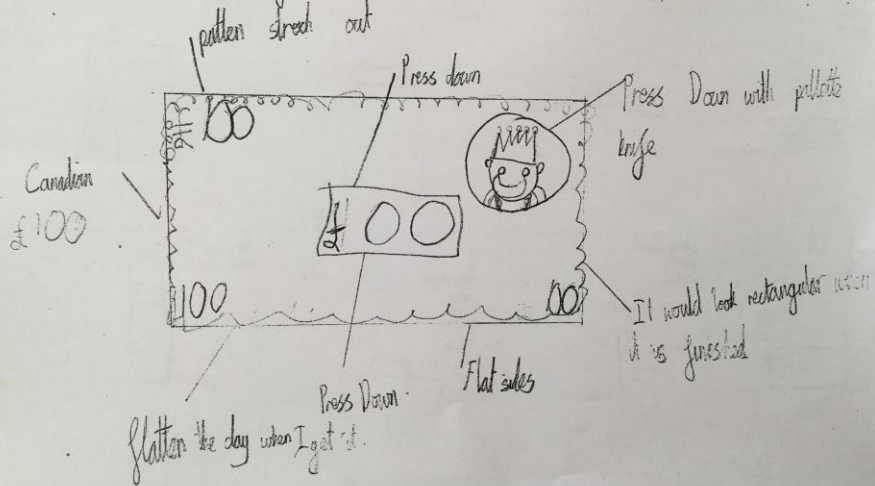 patten strech out
Press down
Press Down with pallette
knife
£100
Canadian
£100
£100
100
00
It would look rectangular when
it is finished
Flat sides
Press Down.
flatten the day when I get it.